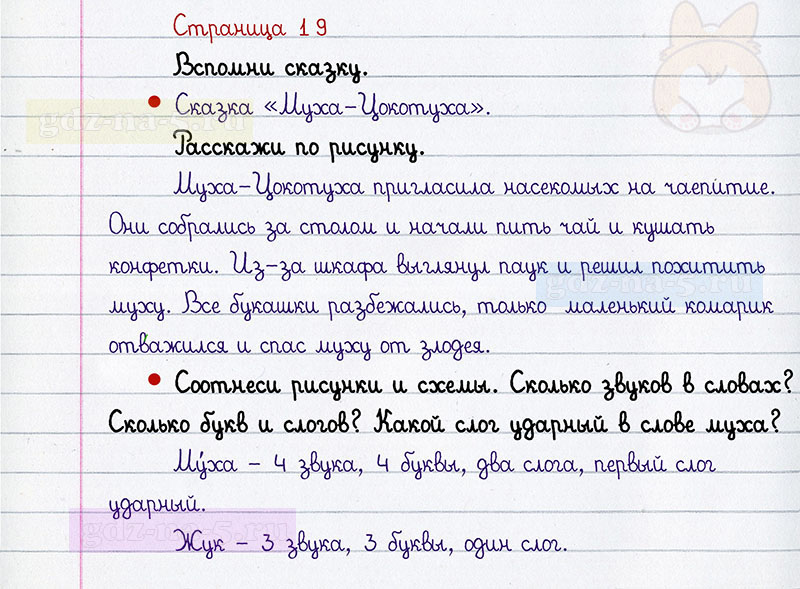 Страница 19
Вспомни сказку.
• Сказка «Муха-Цокотуха».
gdz-na-s.ru
Расскажи по рисунку.
Муха-Цокотуха пригласила насекомых на чаепитие.
Они собрались за столом и начали пить чай и кушать
конфетки. Из-за шкафа выглянул паук и решил похитить
gdz-na-s.ru
муху. Все букашки разбежались, только маленький комарик
отважился и спас муху от злодея.
• Соотнеси рисунки и схемы. Сколько звуков в словах?
Сколько букв и слогов? Какой слог ударный в слове муха?
Му́ха – 4 звука, 4 буквы, два слога, первый слог
ударный.
gdz-na-s.ru
Жук – 3 звука, 3 буквы, один слог.